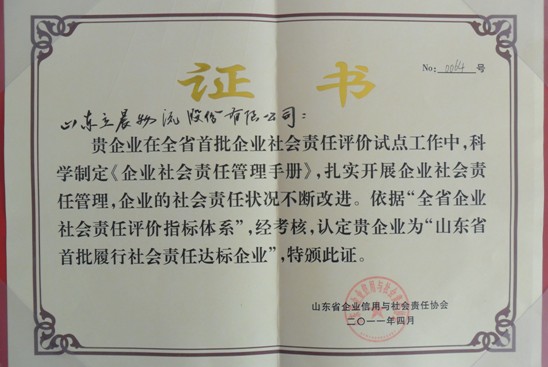 证 书
No: 0064 号
山东立晨物流股份有限公司：
贵企业在全省首批企业社会责任评价试点工作中，科
学制定《企业社会责任管理手册》，扎实开展企业社会责
任管理，企业的社会责任状况不断改进。依据“全省企业
社会责任评价指标体系”，经考核，认定贵企业为“山东省
首批履行社会责任达标企业”，特颁此证。
山东省企业信用与社会责任协会
二〇一一年四月